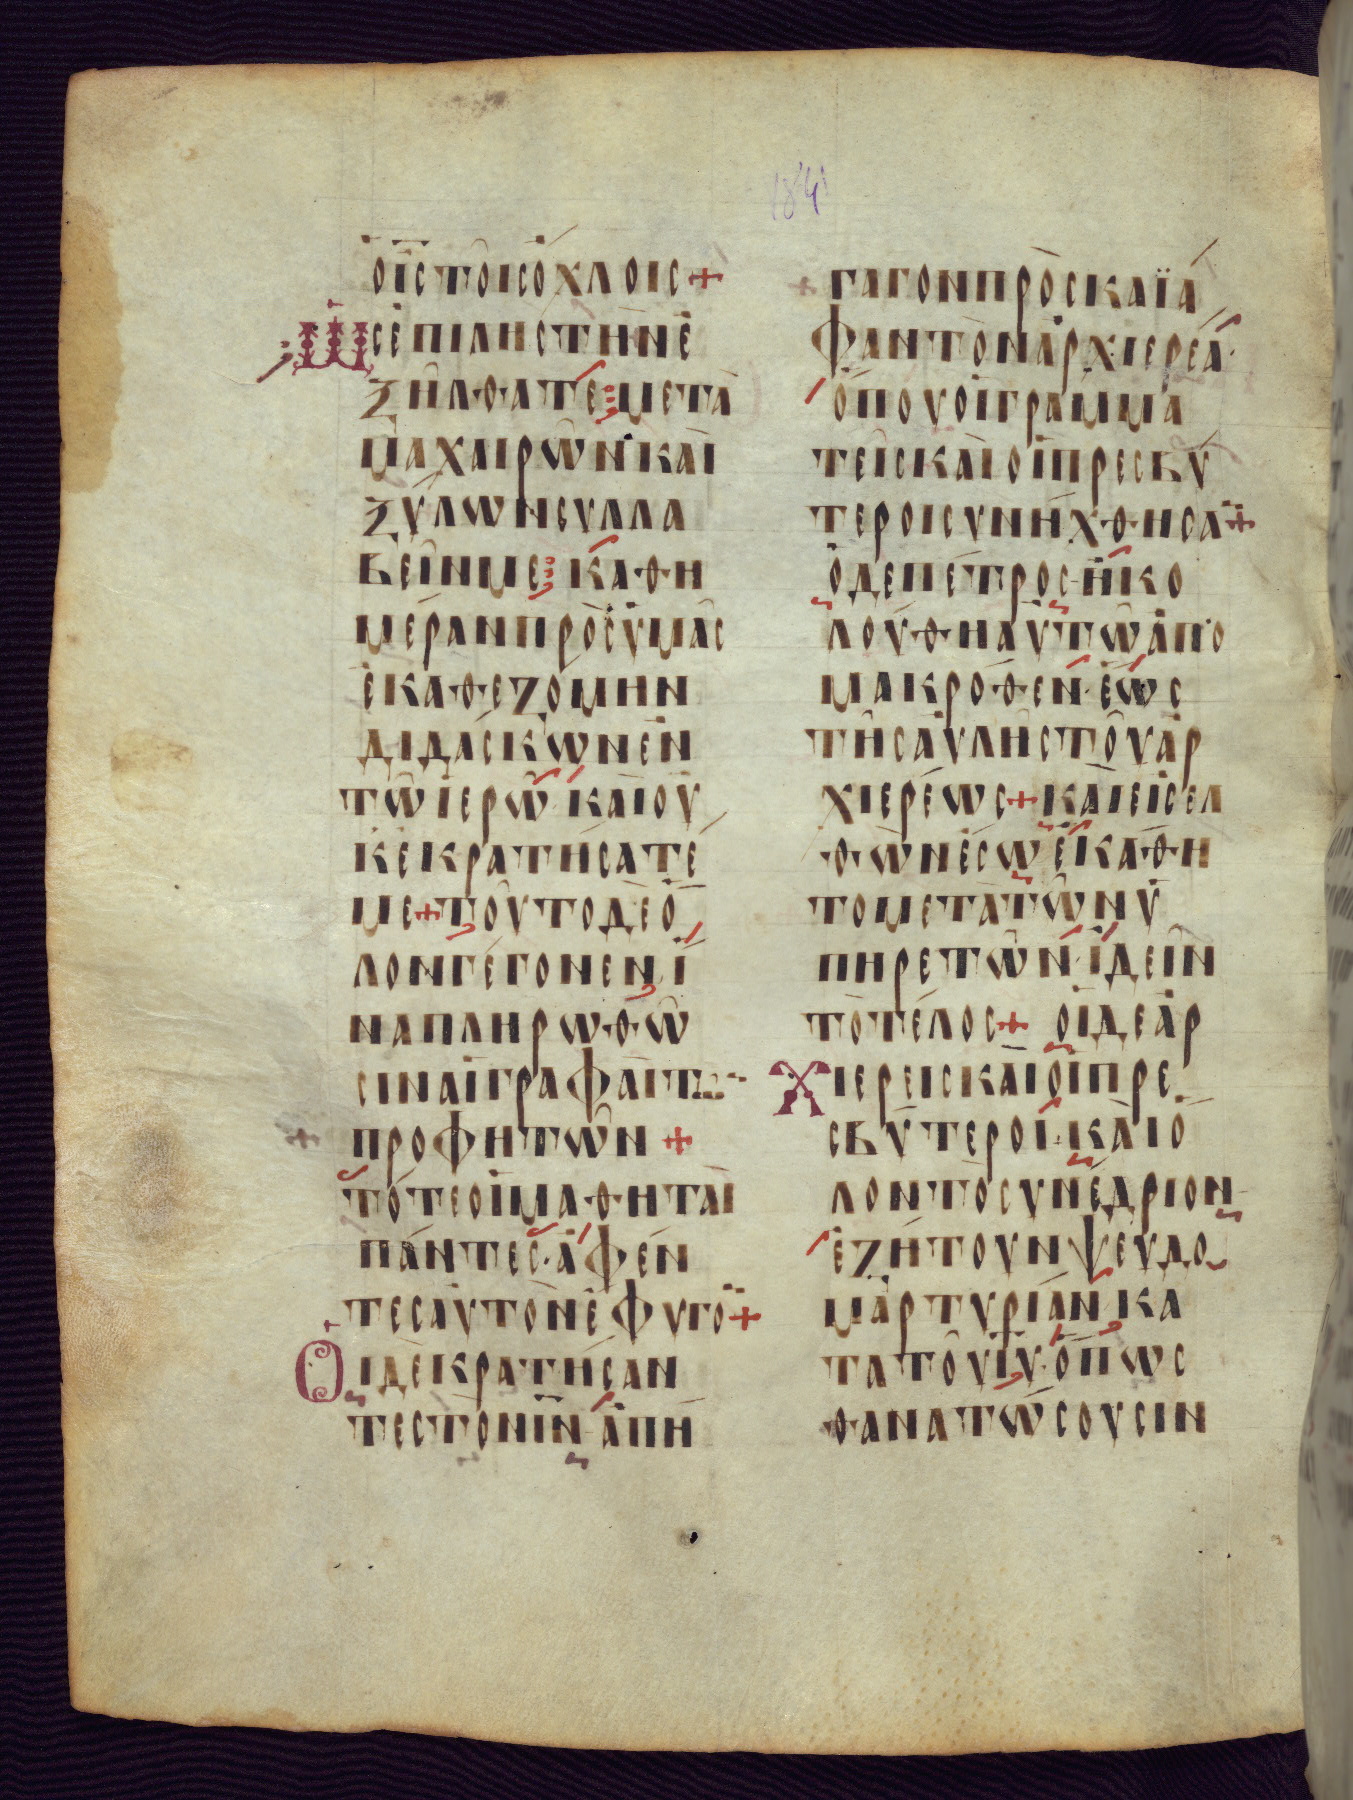 184
ὁ ι̅ς̅ τοῖς ὄχλοις +
Ὡς ἐπὶ λῃστὴν ἐ
ξήλθατε μετὰ
μαχαιρῶν καὶ
ξύλων συλλα
βεῖν με · καθη
μέραν πρὸς ὑμᾶς
ἐκαθεζόμην
διδάσκων ἐν
τῷ ἱερῷ καὶ οὐ
κ ἐκρατήσατέ
με + τοῦτο δὲ ὅ
λον γέγονεν ἵ
να πληρωθῶ
σιν αἱ γραφαὶ τω
προφητῶν +
τότε οἱ μαθηταὶ
πάντες · ἀφέν
τες αὐτὸν ἔφυγο +
Οἱ δὲ κρατήσαν
τες τὸν ι̅ν̅ ἀπή
γαγον πρὸς Καϊά
φαν τὸν ἀρχιερέα ·
ὅπου οἱ γραμμα
τεῖς καὶ οἱ πρεσβύ
τεροι συνήχθησα +
ὁ δὲ πέτρος ἠκο
λούθη αὐτῷ ἀπὸ
μακρόθεν · ἕως
τῆς αὐλῆς τοῦ ἀρ
χιερέως + καὶ εἰσελ
θὼν ἔσω ἐκάθη
το μετὰ τῶν ὑ
πηρετῶν · ἰδεῖν
τὸ τέλος + οἱ δὲ ἀρ
Χιερεῖς καὶ οἱ πρε
σβύτεροι · καὶ ὅ
λον τὸ συνέδριον
ἐζήτουν ψευδο
μαρτυρίαν κα
τὰ τοῦ ι̅υ̅ · ὅπως
θανατώσουσιν